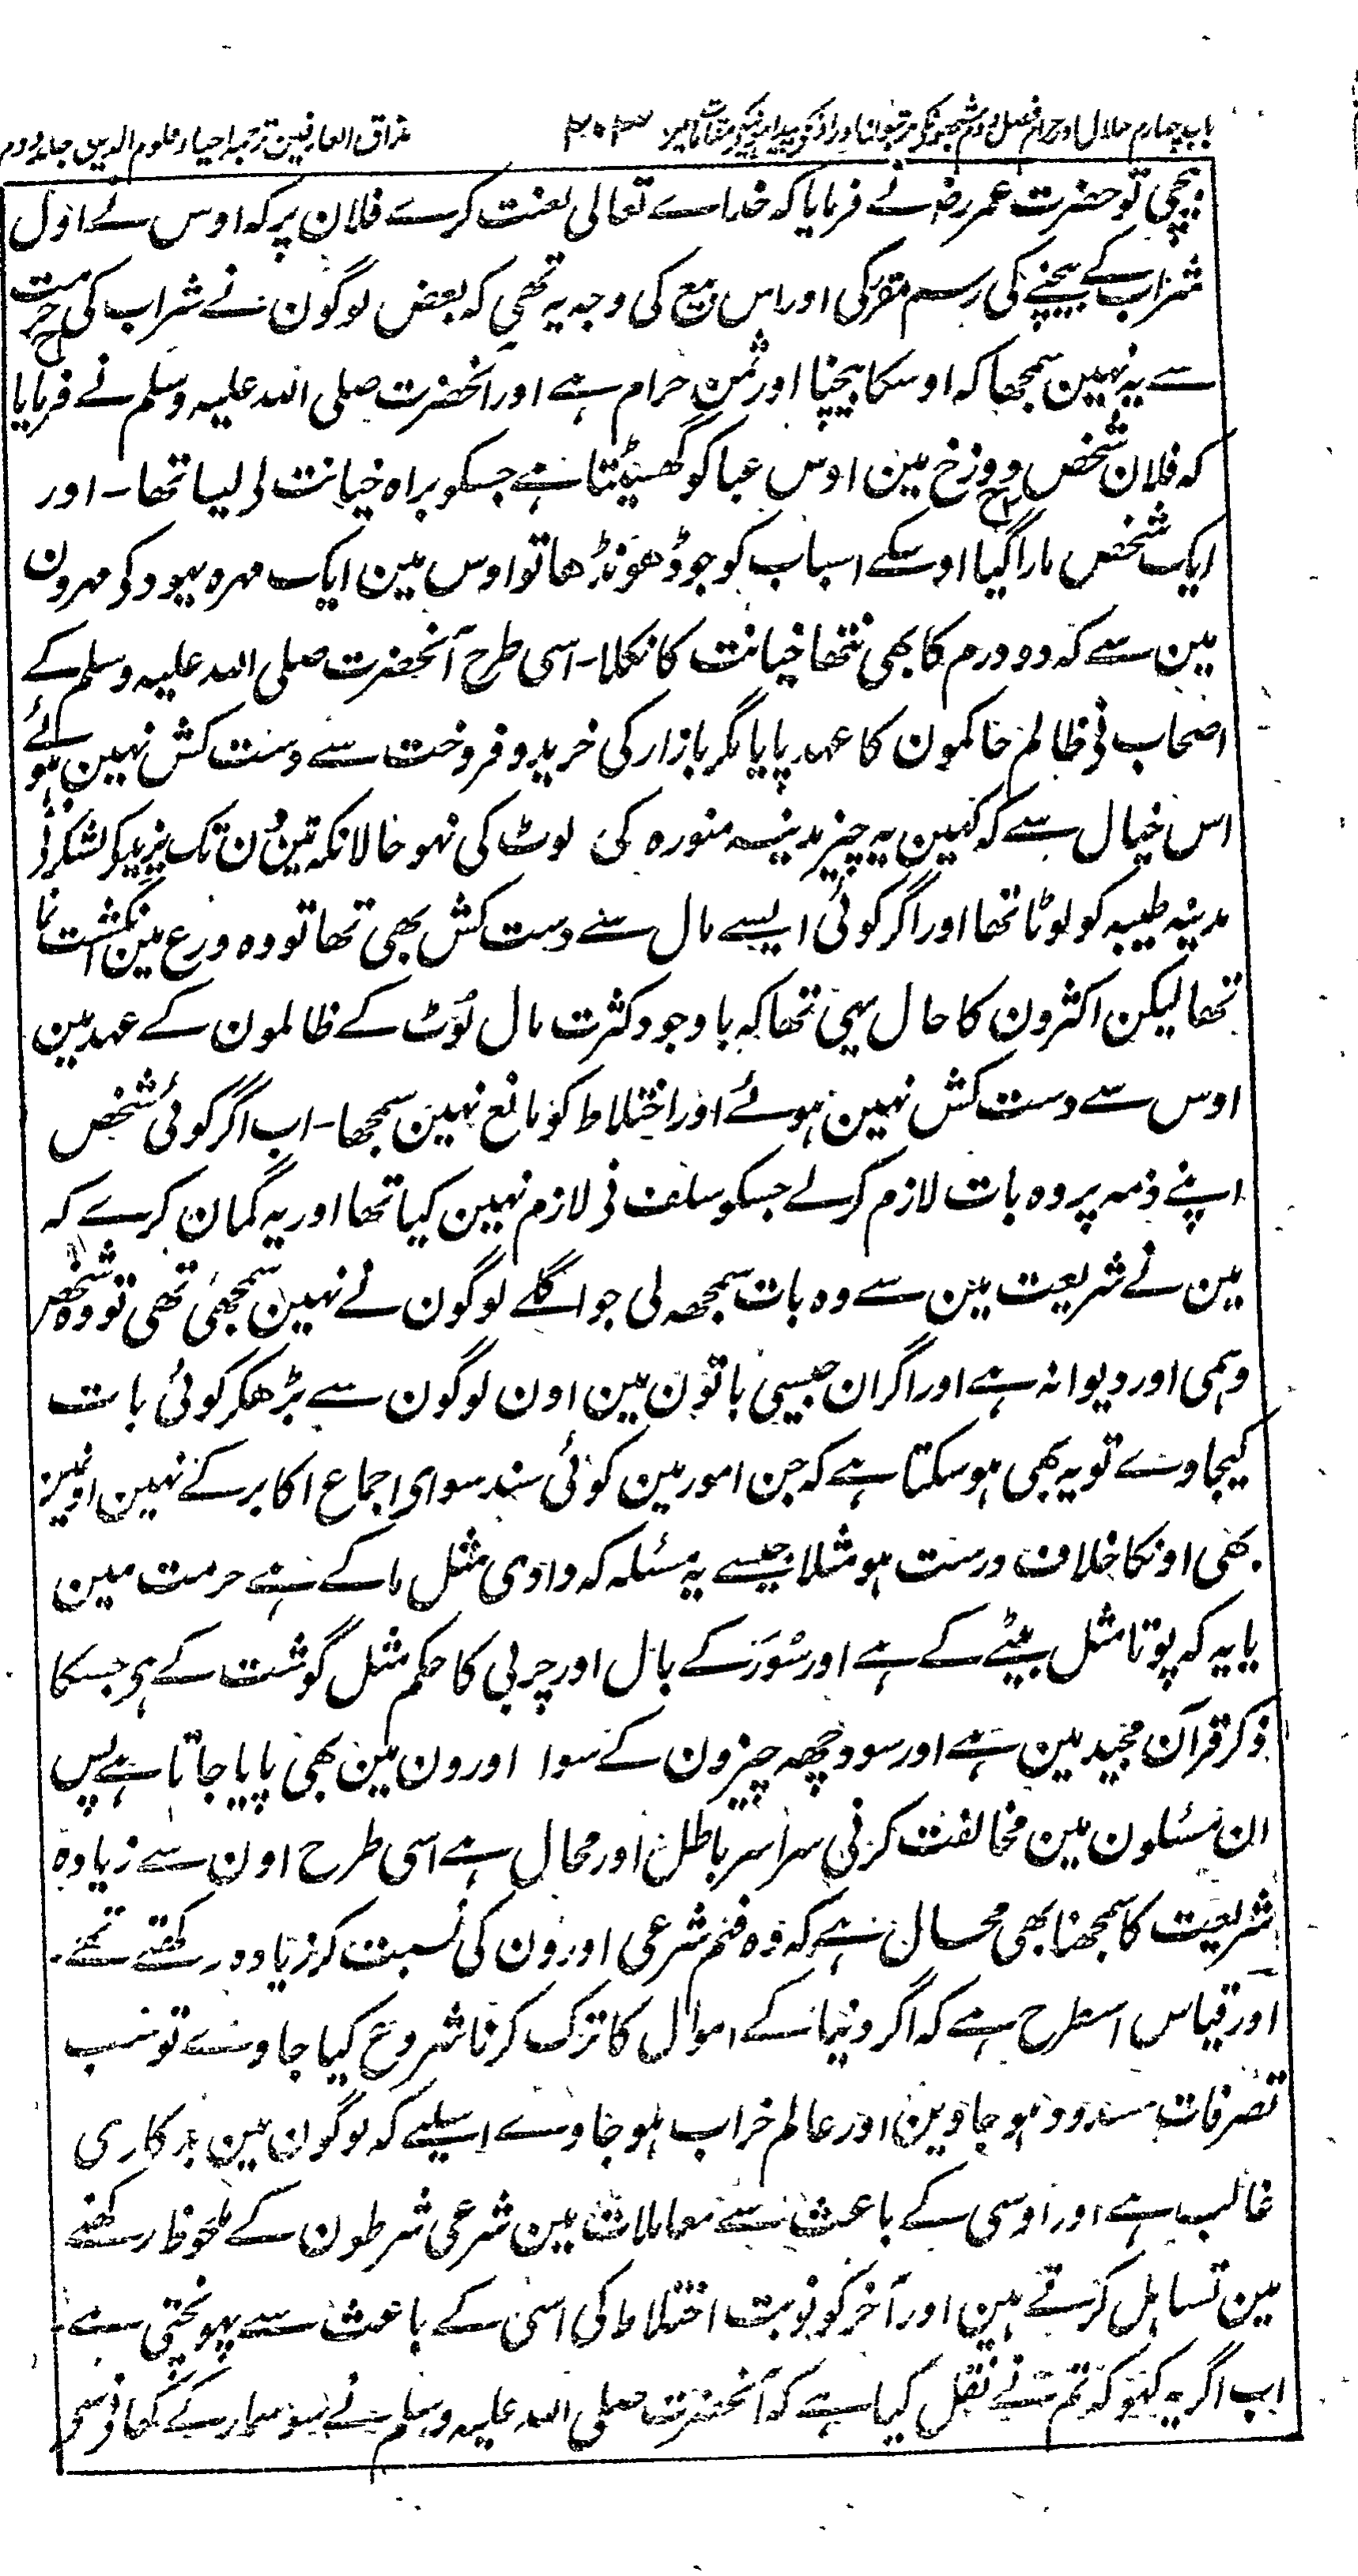 باب چہارم حلال اور حرام فصل دوم شبہون کے ۲۰۳ مذاق العارفین ترجمہ احیاء علوم الدین جلد دوم
بیچی تو حضرت عمر رضہ نے فرمایا کہ خداے تعالی لعنت کرے فلان پر کہ اوس نے اول
شراب کے بیچنے کی رسم مقرر کی اور اس بیع کی وجہ یہ تھی کہ بعض لوگون نے شراب کی حرمت
سے یہ نہین سمجھا کہ اوسکا بیچنا اور ثمن حرام ہے اور آنحضرت صلی اللہ علیہ وسلم نے فرمایا
کہ فلان شخص دوزخ مین اوس عبا کو گھسیٹتا ہے جسکو براہ خیانت لے لیا تھا۔ اور
ایک شخص مارا گیا اوسکے اسباب کو جو ڈھونڈھا تو اوس مین ایک مہرہ یہود کے مہرون
مین سے کہ دو درم کا بھی نتھا خیانت کا نکلا۔ اسی طرح آنحضرت صلی اللہ علیہ وسلم کے
اصحاب نے ظالم حاکمون کا عہد پایا مگر بازار کی خرید و فروخت سے دست کش نہین ہوئے
اس خیال سے کہ کہین یہ چیز مدینہ منورہ کی لوٹ کی نہو حالانکہ تین دن تک یزید کے لشکر نے
مدینہ طیبہ کو لوٹا تھا اور اگر کوئی ایسے مال سے دست کش بھی تھا تو وہ ورع مین انگشت نما
تھا لیکن اکثرون کا حال یہی تھا کہ باوجود کثرت مال لوٹ کے ظالمون کے عہد مین
اوس سے دست کش نہین ہوئے اور اختلاط کو مانع نہین سمجھا۔ اب اگر کوئی شخص
اپنے ذمہ پر وہ بات لازم کرلے جسکو سلف نے لازم نہین کیا تھا اور یہ گمان کرے کہ
مین نے شریعت مین سے وہ بات سمجھ لی جو اگلے لوگون نے نہین سمجھی تھی تو وہ شخص
وہمی اور دیوانہ ہے اور اگر ان جیسی باتون مین اون لوگون سے بڑھکر کوئی بات
کیجاوے تو یہ بھی ہوسکتا ہے کہ جن امور مین کوئی سند سواے اجماع اکابر کے نہین اونمین
بھی اونکا خلاف درست ہو مثلا جیسے یہ مسئلہ کہ دادی مثل ما کے ہے حرمت مین
یا یہ کہ پوتا مثل بیٹے کے ہے اور سور کے بال اور چربی کا حکم مثل گوشت کے ہی جسکا
ذکر قرآن مجید مین ہے اور سود چھہ چیزون کے سوا اورون مین بھی پایا جاتا ہے پس
ان مسئلون مین مخالفت کرنی سراسر باطل اور محال ہے اسی طرح اون سے زیادہ
شریعت کا سمجھنا بھی محال ہے کہ وہ فہم شرعی اورون کی نسبت کر زیادہ رکھتے تھے۔
اور قیاس اسطرح ہے کہ اگر دنیا کے اموال کا ترک کرنا شروع کیا جاوے تو سب
تصرفات مسدود ہو جاوین اور عالم خراب ہو جاوے اسلیے کہ لوگون مین بدکاری
غالب ہے اور اوسی کے باعث سے معاملات مین شرعی شرطون کے ملحوظ رکھنے
مین تساہل کرتے ہین اور آخر کو نوبت اختلاط کی اسی کے باعث سے پہونچتی ہے۔
اب اگر یہ کہو کہ تم نے نقل کیا ہے کہ آنحضرت صلی اللہ علیہ وسلم نے سوسمار کے کھانے سے